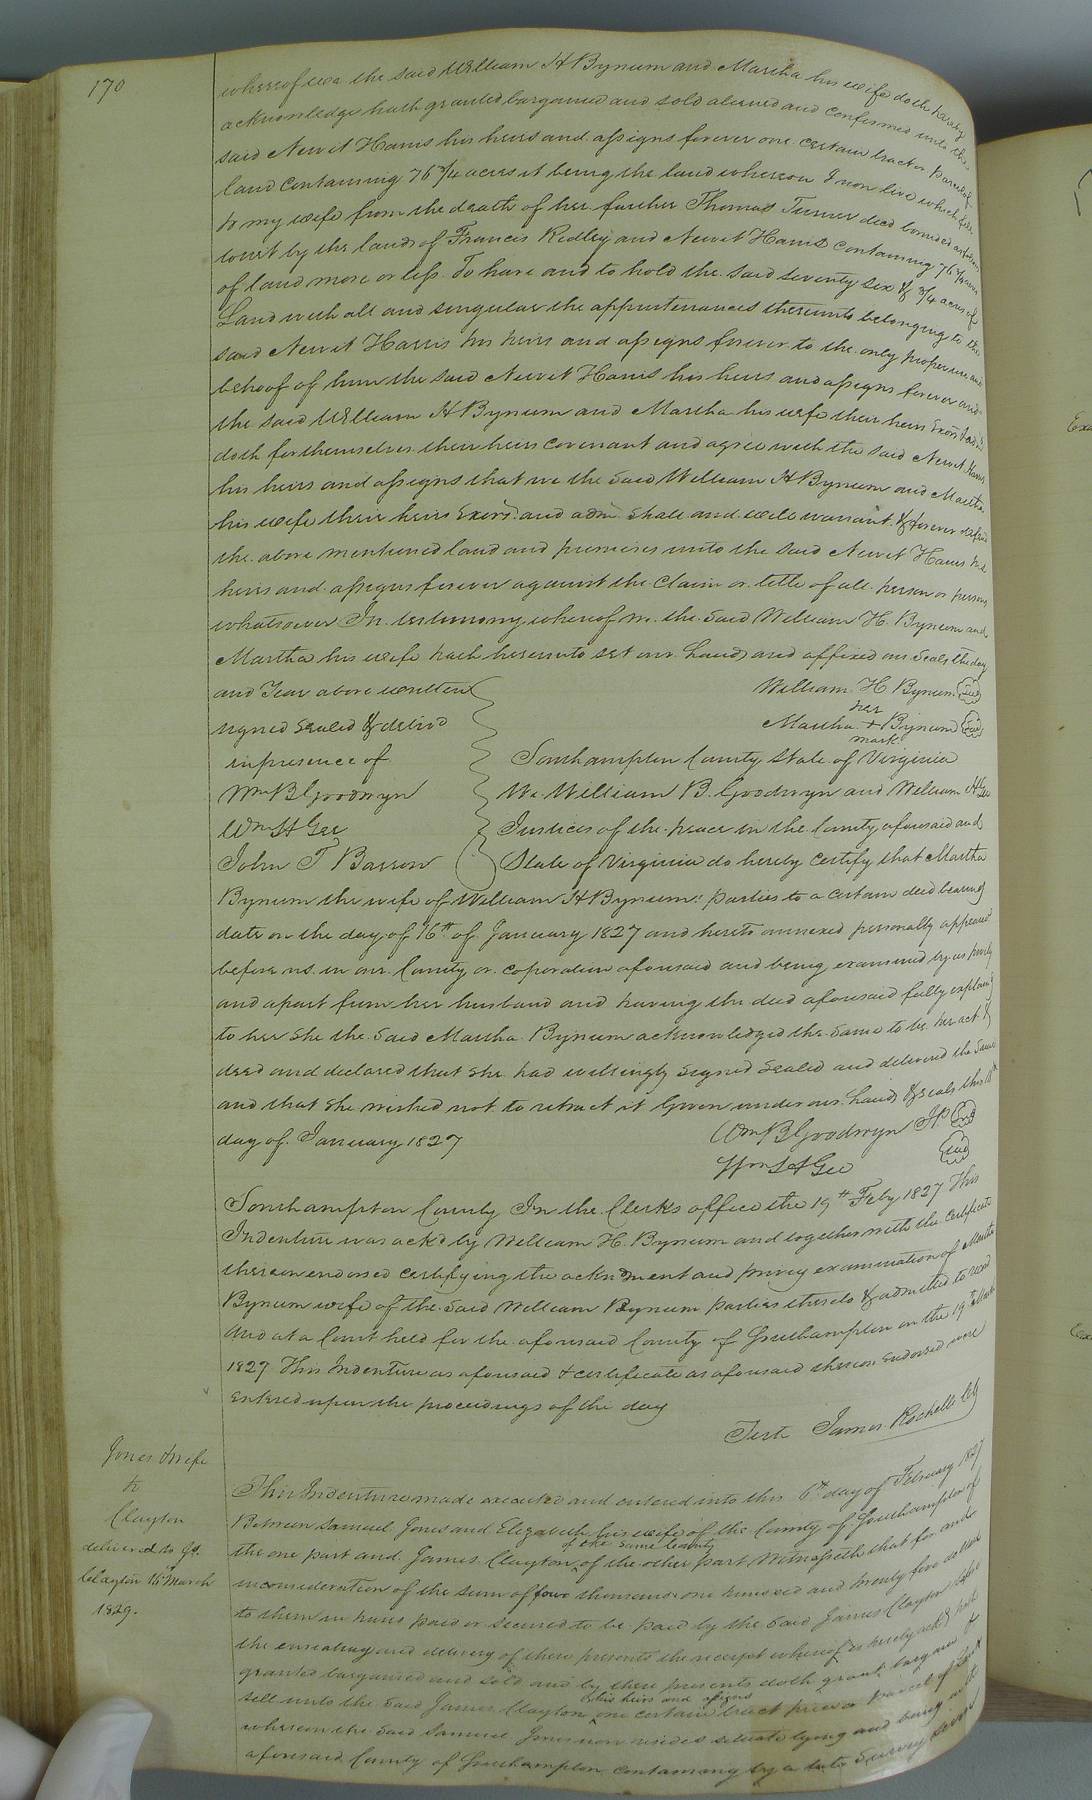 170
whereof we the said William H Bynum and Martha his wife doth hereby
acknowledge hath granted bargained and sold aliened and confirmed unto the
said Newit Harris his heirs and assigns forever one certain tract or parcel of
land containing 76 3/4 acres it being the land whereon I now live which fell
to my wife from the death of her further Thomas Turner decd bounded as follows
towit by the lands of Francis Ridley and Newit Harris containing 76 3/4 acres
of land more or less. To have and to hold the said seventy six & 3/4 acres of
Land with all and singular the appurtenances thereunto belonging to the
said Newit Harris his heirs and assigns forever to the only proper use and
behoof of him the said Newit Harris his heirs and assigns forever and
the said William H Bynum and Martha his wife their heirs Exors & admrs
doth for themselves their heirs covenant and agree with the said Newit Harris
his heirs and assigns that we the said William H Bynum and Martha
his wife their heirs Exors. and adm. shall and will warrant & forever defend
the above mentioned land and premises unto the said Newit Harris his
heirs and assigns forever against the claim or title of all person or persons
whatsoever In testimony whereof we the said William H. Bynum and
Martha his wife hath hereunto set our hands and affixed our seals the day
and Year above written
William H Bynum Seal
her
signed sealed & delivd
Martha + Bynum Seal
mark
in presence of
Southampton County State of Virginia
Wm B Goodwyn
We William B. Goodwyn and William H Gee
Wm H Gee
Justices of the peace in the County aforesaid and
John T Barrow
State of Virginia do hereby certify that Martha
Bynum the wife of William H Bynum parties to a certain deed bearing
date on the day of 16th of January 1827 and hereto annexed personally appeared
before us in our County or coporation aforesaid and being examined by us privily
and apart from her husband and having the deed aforesaid fully explained
to her she the said Martha Bynum acknowledged the same to be her act &
deed and declared that she had willingly signed sealed and delivered the same
and that she wished not to retract it Given under our hands & seals this
day of January 1827
Wm B Goodwyn JP Seal
Wm H Gee Seal
Southampton County In the Clerks office the 19th Feby 1827 This
Indenture was ackd by William H. Bynum and together with the certificate
thereon endorsed certifying the acknment and privy examination of Martha
Bynum wife of the said William Bynum parties thereto & admitted to record
And at a Court held for the aforesaid County of Southampton on the 19th March
1827 This Indenture as aforesaid & certificate as aforesaid thereon endorsed were
entered upon the proceedings of the day
Teste James Rochelle Clk
Jones & wife
to
Clayton
delivered to Js.
Clayton 15 March
1829.
This Indenture made executed and entered into this 6th day of February 1827
Between Samuel Jones and Elizabeth his wife of the County of Southampton of
the one part and James Clayton of the same County of the other part Witnesseth that for and
in consideration of the sum of four thousand one hundred and twenty five dollars
to them in hand paid or secured to be paid by the said James Clayton before
the ensealing and delivery of these presents the receipt whereof is hereby ackd hath
granted bargained and sold and by these presents doth grant bargain &
sell unto the said James Clayton his heirs and assigns one certain tract piece or parcel of land
whereon the said Samuel Jones now resides situate lying and being in the
aforesaid County of Southampton containing by a late survey